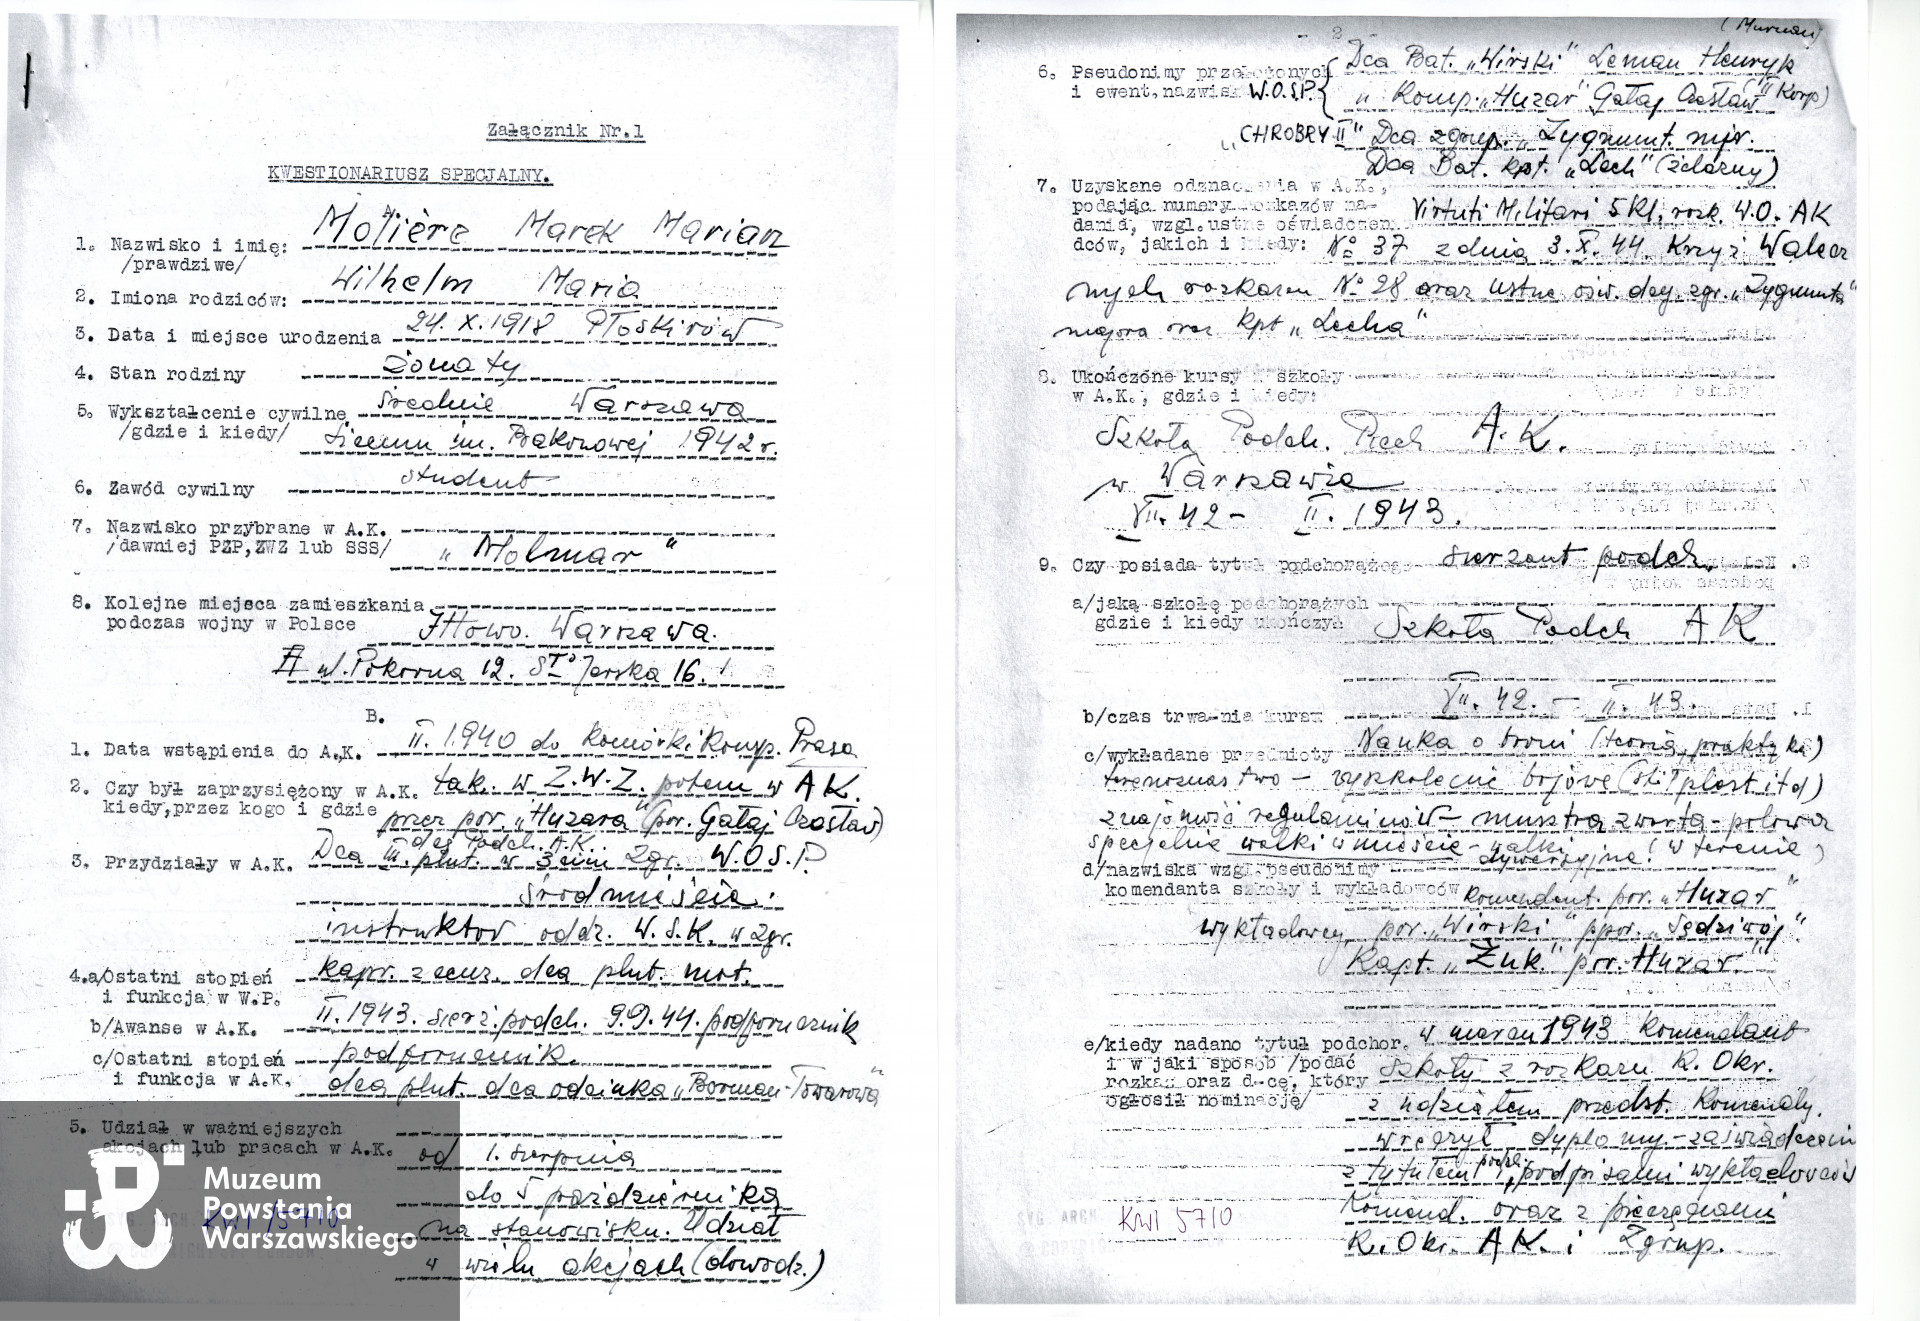 Załącznik Nr.1
KWESTIONARIUSZ SPECJALNY.
A.
1. Nazwisko i imię: Molière Marek Marian
/prawdziwe/
2. Imiona rodziców: Wilhelm Maria
3. Data i miejsce urodzenia 24.X.1918 Płoskirów
4. Stan rodziny żonaty
5. Wykształcenie cywilne średnie Warszawa
/gdzie i kiedy/ Liceum im. 1942 r.
6. Zawód cywilny student
7. Nazwisko przybrane w A.K.
/dawniej PZP, ZWZ lub SSS/ „Molmar"
8. Kolejne miejsca zamieszkania
podczas wojny w Polsce Iłowo. Warszawa.
ul. Pokorna 12. Sto Jerska 16.
B.
1. Data wstąpienia do A.K. II. 1940 do komórki Komp. Prasa
2. Czy był zaprzysiężony w A.K. tak. w Z.W.Z. potem w AK.
kiedy, przez kogo i gdzie przez por. „Huzara" (por. Gałaj Czesław)
dcę Podch. A.K.
3. Przydziały w A.K. Dca III. plut. w 3 cim Zgr. W.O.S.P.
Śródmieście.
instruktor oddz. W.S.K. w Zgr.
4.a/Ostatni stopień kapr. z cenz. dca plut. mot.
i funkcja w W.P.
b/Awanse w A.K. II.1943. sierż. podch. 9.9.44. podporucznik
c/Ostatni stopień podporucznik.
i funkcja w A.K. dca plut. dca odcinka „Borman-Towarowa"
5. Udział w ważniejszych
akcjach lub pracach w A.K. od 1. sierpnia
do 5 października
na stanowisku. Udział
w wielu akcjach (dowodz.)
KWI 15710
Muzeum
Powstania
Warszawskiego
- 2 -
(Murnau)
6. Pseudonimy przełożonych Dca Bat. „Wirski" Leman Henryk
i ewent. nazwisk W.O.S.P. „ Komp. „Huzar" Gałaj Czesław (II Korp)
„CHROBRY II" Dca zgrup. „Zygmunt" mjr.
Dca Bat. kpt. „Lech" (żelazny)
7. Uzyskane odznaczenia w A.K.,
podając numery rozkazów na-
dania, wzgl. ustne oświadczen. Virtuti Militari 5 Kl. rozk. W.O. AK
dców, jakich i kiedy: No 37 z dnia 3.X.44. Krzyż Walecz
nych rozkazem No 28 oraz ustne ośw. dcy. zgr. „Zygmunta"
majora oraz kpt „Lecha"
8. Ukończone kursy i szkoły
w A.K., gdzie i kiedy:
Szkoła Podch. Piech A.K.
w Warszawie
VII. 42 - II. 1943.
9. Czy posiada tytuł podchorążego sierżant podch.
a/jaką szkołę podchorążych
gdzie i kiedy ukończył Szkoła Podch AK
b/czas trwania kursu VII. 42. - II. 43.
c/wykładane przedmioty Nauka o broni (teoria, praktyka)
terenoznastwo - wyszkolenie bojowe (strz plast. itd)
znajomość regulaminów - musztra zwarta - polowa
specjalnie walki w mieście - walki dywersyjne (w terenie)
d/nazwiska wzgl. pseudonimy
komendanta szkoły i wykładowców Komendant. por. „Huzar"
wykładowcy por. „Wirski" ppor. „Sędziwój".
Kapt. „Żuk." por. Huzar"
e/kiedy nadano tytuł podchor. w marcu 1943 komendant
i w jaki sposób /podać Szkoły z rozkazu K. Okr.
rozkaz oraz d-cę, który
ogłosił nominację/ z udziałem przedst. Komendy.
wręczył dyplomy - zaświadczenia
z tytułem podch. podpisami wykładowców
Komend. oraz z pieczęciami
K. Okr. AK. i Zgrup.
KWI 5710